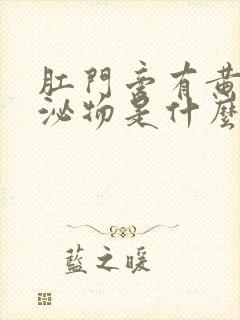 肛門旁有黃
泌物是什麼
藍之暖